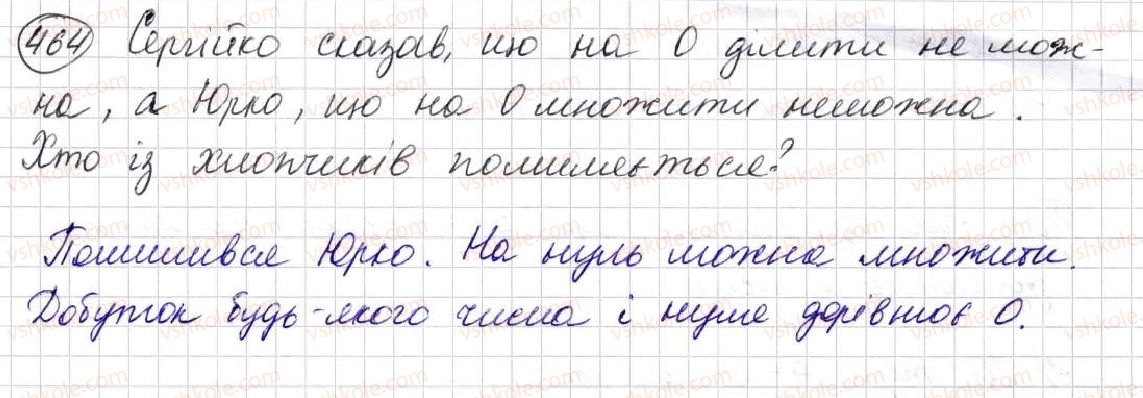 464 Сергійко сказав, що на 0 ділити не мож-
на, а Юрко, що на 0 множити не можна.
Хто із хлопчиків помиляється?
Помилився Юрко. На нуль можна множити.
Добуток будь-якого числа і нуля дорівнює 0.